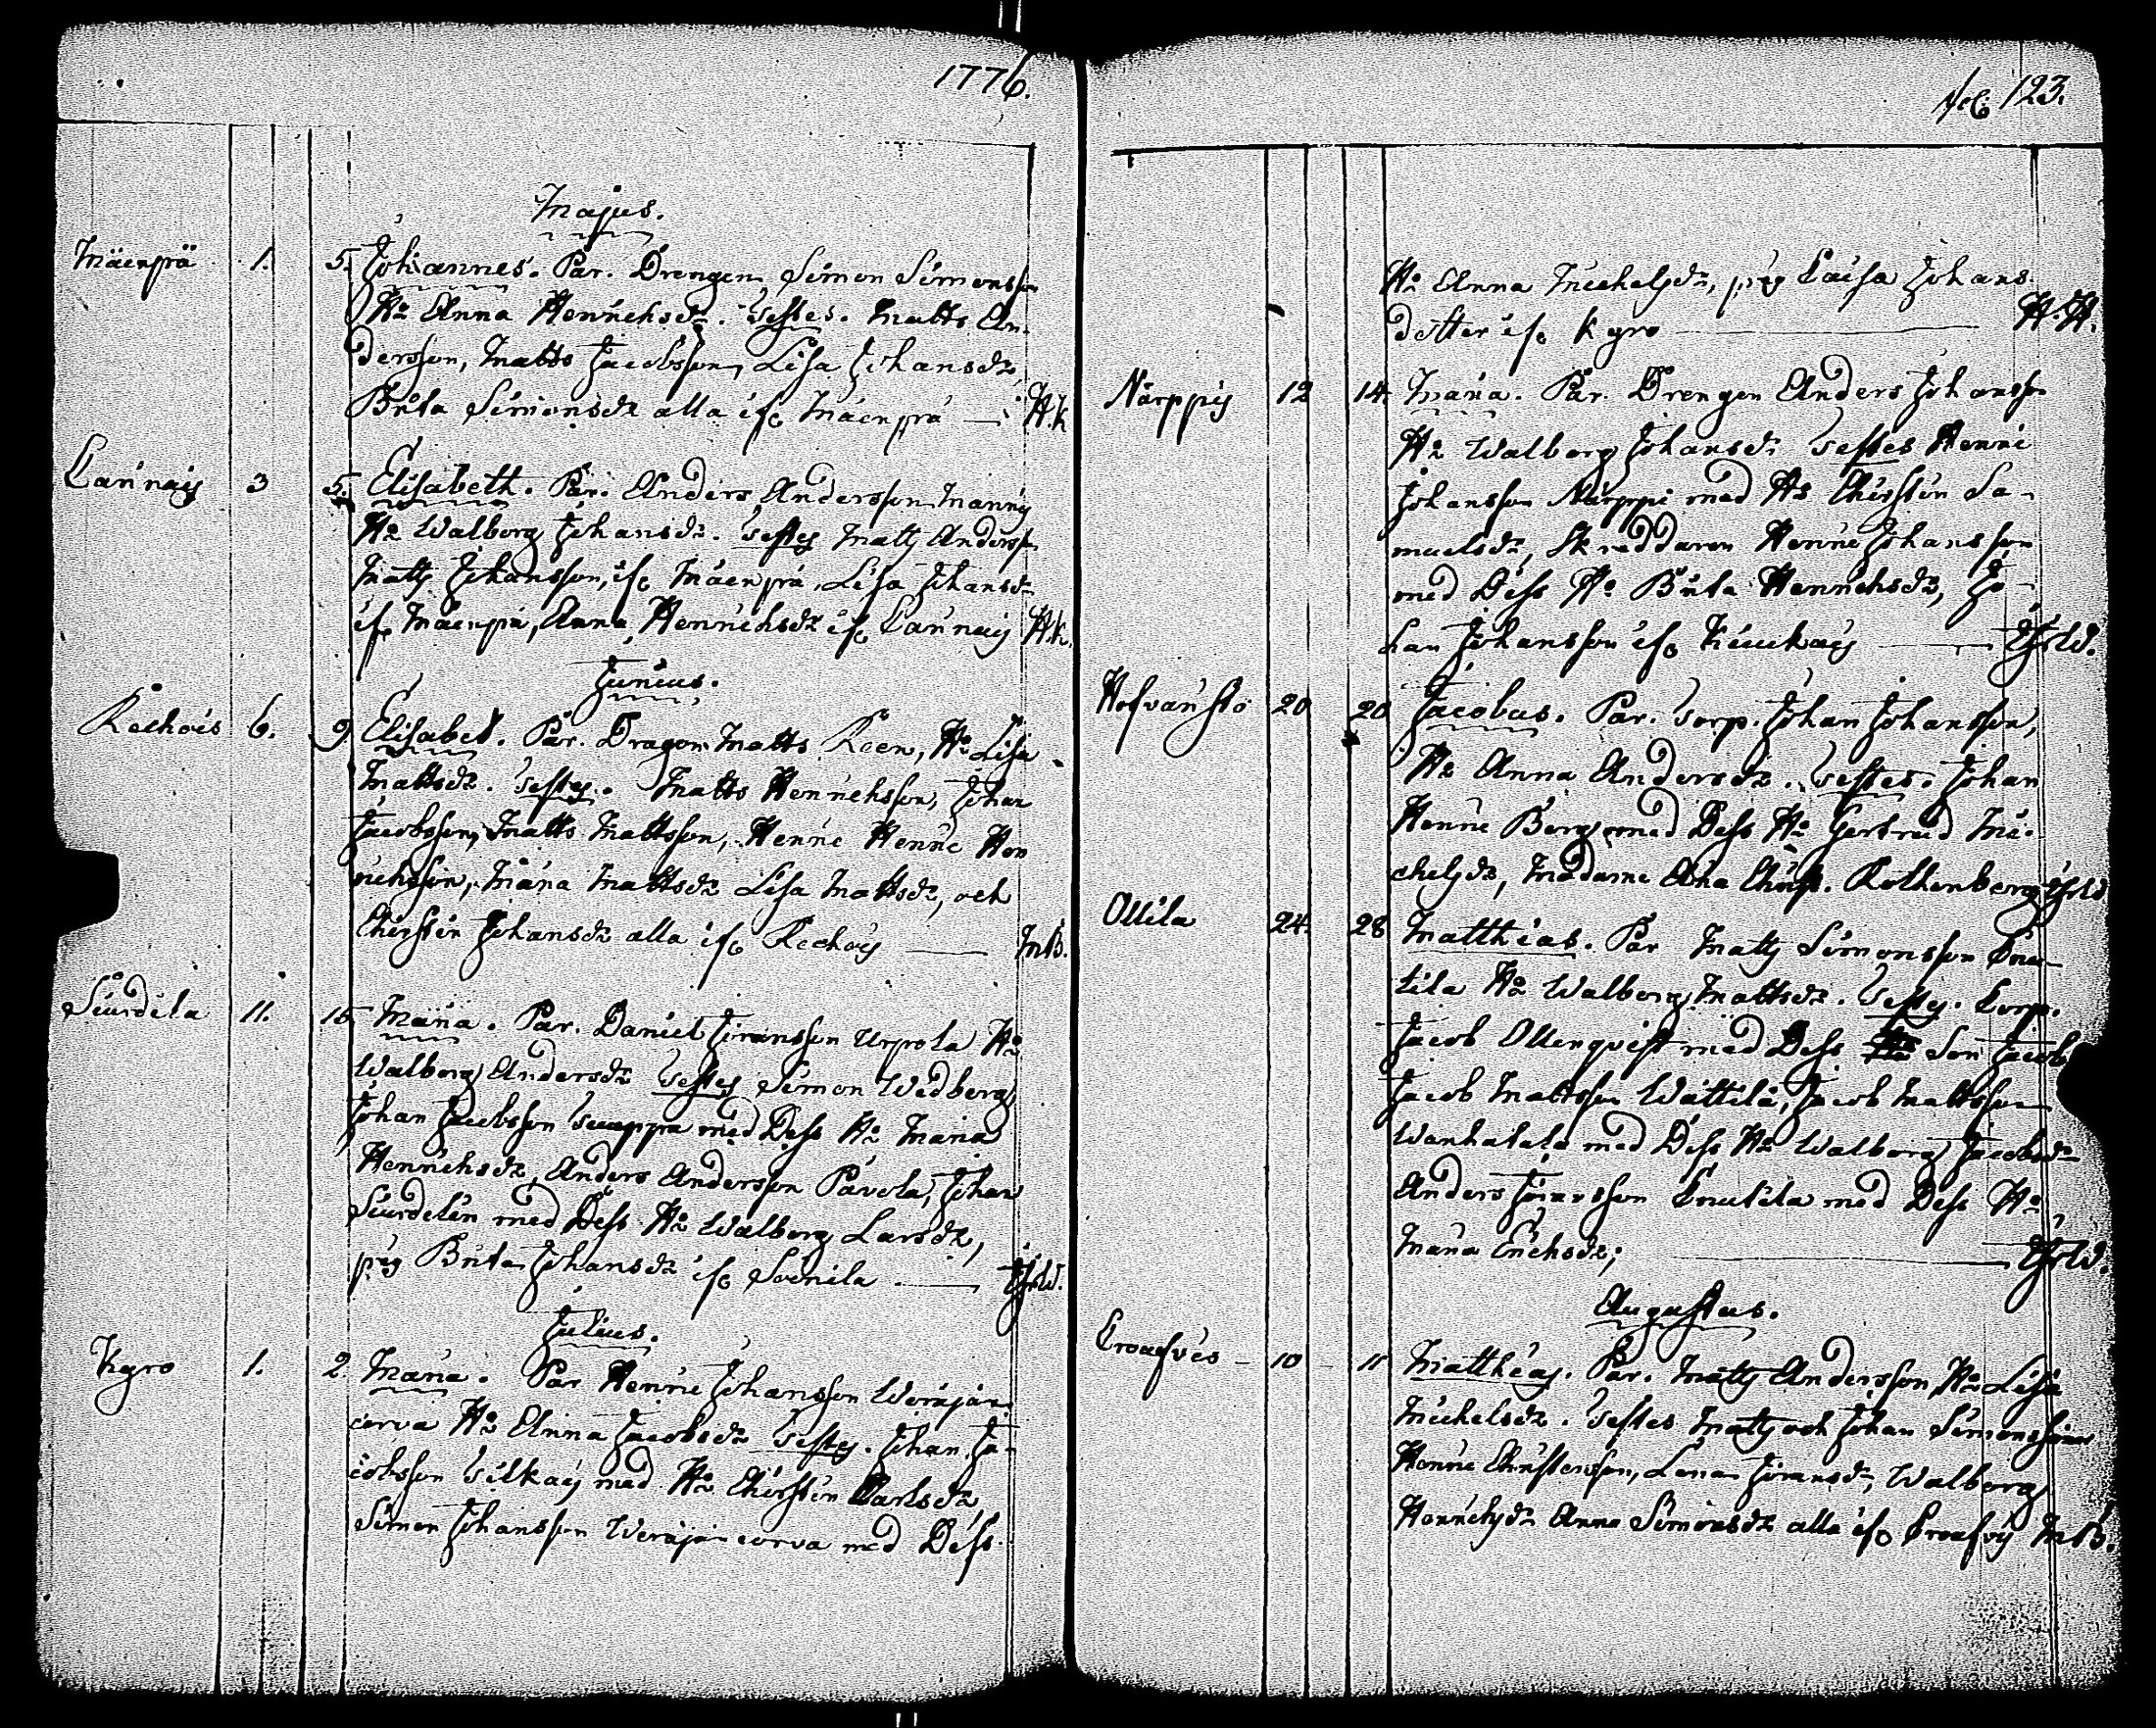 1776.
Majus.
Mäenpä 1. 5. Johannes. Par. Drengen Simon Simonsson
Hu Anna Henrichsdr. Testes. Matts An-
dersson, Matts Jacobsson, Lisa Johansdr
Brita Simonsdr alla ifr Mäenpä — H.K
Lannais 3 5. Elisabeth. Par. Anders Andersson Nanny
Hu Walborg Johansdr. Testes Matts Andersson
Matts Johansson, ifr Mäenpä, Lisa Johansdr
ifr Mäenpä, Anna Henrichsdr ifr Lannais H.K.
Junius.
Kechois 6. 9 Elisabet. Par. Dragon Matts Keen, Hu Lisa
Mattsdr. Testes. Matts Henrichsson, Johan
Jacobsson, Matts Mattsson, Henric Henric Hen
richsson, Maria Mattsdr Lisa Mattsdr, och
Chirstin Johansdr alla ifr Kechois — M.B.
Siurdila 11. 15 Maria. Par. Daniel Jöransson Urpola Hu
Walborg Andersdr Testes Simon Widberg,
Johan Jacobsson med Dess Hu Maria
Henrichsdr, Anders Andersson Pavola, Johan
Siurdelin med Dess Hu Walborg Larsdr,
pig Brita Johansdr ifr Soinila —
Julius.
Kyro 1. 2 Maria. Par Henric Johansson Weräjän
corva Hu Anna Jacobsdr Testes. Johan Ja-
cobsson Silkais med Hu Chirstin Carlsdr,
Simon Johansson Weräjäncorva med Dess
fol. 123.
Hu Anna Michelsdr, pig Caisa Johans
dotter ifr Kyro — H.H.
Närppis 12 14. Maria. Par. Drengen Anders Johansson
Hu Walborg Johansdr Testes Henric
Johansson Närppi med Hu Chirstin Sa-
muelsdr, Skreddaren Henric Johansson
med Dess Hu Brita Henrichsdr, Jo-
han Johansson ifr Kiuckais —
20 20 Jacobus. Par. Torp. Johan Johansson,
Hu Anna Andersdr. Testes. Johan
Henric Berg med Dess Hu Gertrud Mi-
chelsdr, Madame Ana Christ. Rothenberg
Ollila 24. 28 Matthias. Par Matts Simonsson
Hu Walborg Mattsdr. Testes. Corp.
Jacob Ollenqvist med Dess Son Jacob
Jacob Mattsson Wättilä, Jacob Mattsson
Wanhatalo med Dess Hu Walborg Jacobsdr
Anders Jöransson med Dess Hu
Maria Erichsdr; —
Augustus.
10 11 Matthias. Par. Matts Andersson, Hu Lisa
Michelsdr. Testes Matts och Johan Simonssöner
Henric Christersson, Lena Jöransdr, Walborg
Henrichsdr Anna Simonsdr alla ifr M.B.